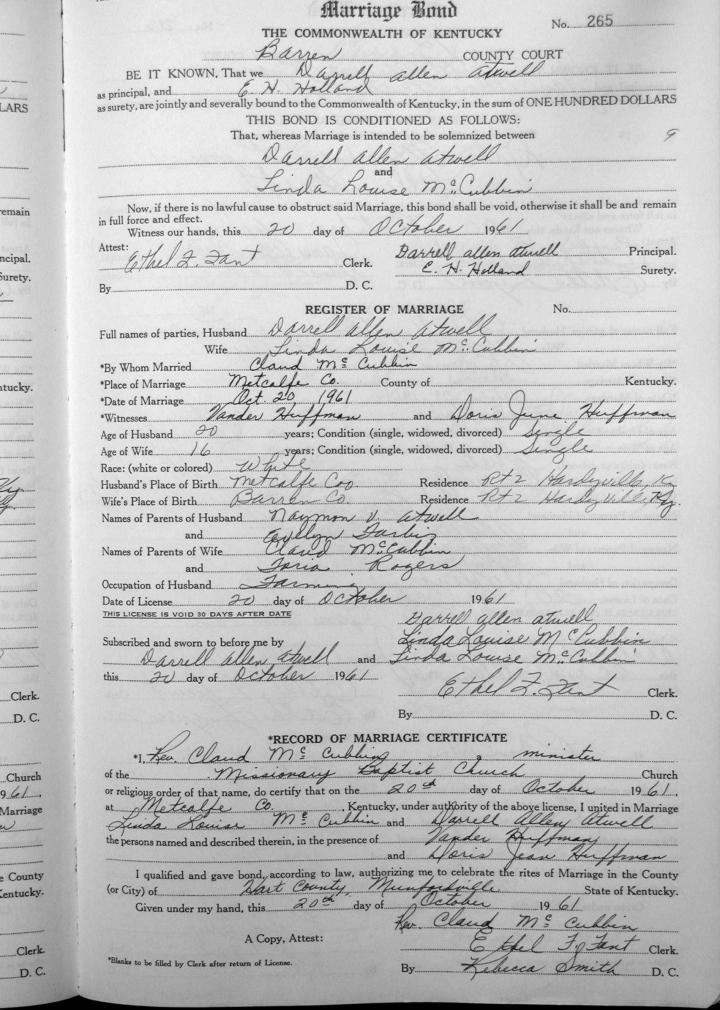 Marriage Bond
No. 265
THE COMMONWEALTH OF KENTUCKY
Barren COUNTY COURT
BE IT KNOWN, That we Darrell allen atwell
as principal, and E. H. Holland
as surety, are jointly and severally bound to the Commonwealth of Kentucky, in the sum of ONE HUNDRED DOLLARS
THIS BOND IS CONDITIONED AS FOLLOWS:
That, whereas Marriage is intended to be solemnized between
Darrell Allen Atwell
and
Linda Louise McCubbin
Now, if there is no lawful cause to obstruct said Marriage, this bond shall be void, otherwise it shall be and remain
in full force and effect.
Witness our hands, this 20 day of October 1961
Attest: Darrell allen atwell Principal.
Ethel F. Fant Clerk. E. H. Holland Surety.
By D. C.
REGISTER OF MARRIAGE No.
Full names of parties, Husband Darrell Allen Atwell
Wife Linda Louise McCubbin
*By Whom Married Claud Mc Cubbin
*Place of Marriage Metcalfe Co. County of Kentucky.
*Date of Marriage Oct. 20, 1961
*Witnesses Vander Huffman and Doris June Huffman
Age of Husband 20 years; Condition (single, widowed, divorced) Single
Age of Wife 16 years; Condition (single, widowed, divorced) Single
Race: (white or colored) White
Husband's Place of Birth Metcalfe Coo Residence Rt 2 Hardyville, Ky
Wife's Place of Birth Barren Co. Residence Rt 2 Hardyville, Ky.
Names of Parents of Husband Naymon V. Atwell
and
Names of Parents of Wife Claud McCubbin
and Rogers
Occupation of Husband Farming
Date of License 20 day of October 1961
THIS LICENSE IS VOID 30 DAYS AFTER DATE
Darrell allen atwell
Subscribed and sworn to before me by Linda Louise McCubbin
Darrell Allen Atwell and Linda Louise McCubbin
this 20 day of October 1961
Ethel F. Fant Clerk.
By D. C.
*RECORD OF MARRIAGE CERTIFICATE
*I, Rev. Claud Mc Cubbin, a minister
of the Missionary Baptist Church Church
or religious order of that name, do certify that on the 20th day of October 1961,
at Metcalfe Co., Kentucky, under authority of the above license, I united in Marriage
Linda Louise Mc Cubbin and Darrell Allen Atwell
the persons named and described therein, in the presence of Vander Huffman
and Doris Jean Huffman
I qualified and gave bond, according to law, authorizing me to celebrate the rites of Marriage in the County
(or City) of Hart County, Munfordville State of Kentucky.
Given under my hand, this 20th day of October 1961
Rev. Claud Mc Cubbin
A Copy, Attest: Ethel F. Fant Clerk.
*Blanks to be filled by Clerk after return of License.
By Rebecca Smith D. C.